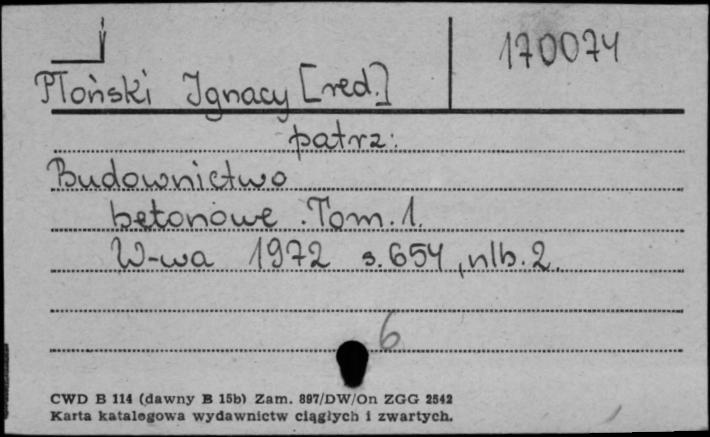 170074
Płoński Ignacy [red.]
patrz:
Budownictwo
betonowe. Tom. 1.
W-wa 1972 s. 654, nlb. 2.
6
CWD B 114 (dawny B 15b) Zam. 897/DW/On ZGG 2542
Karta katalogowa wydawnictw ciągłych i zwartych.